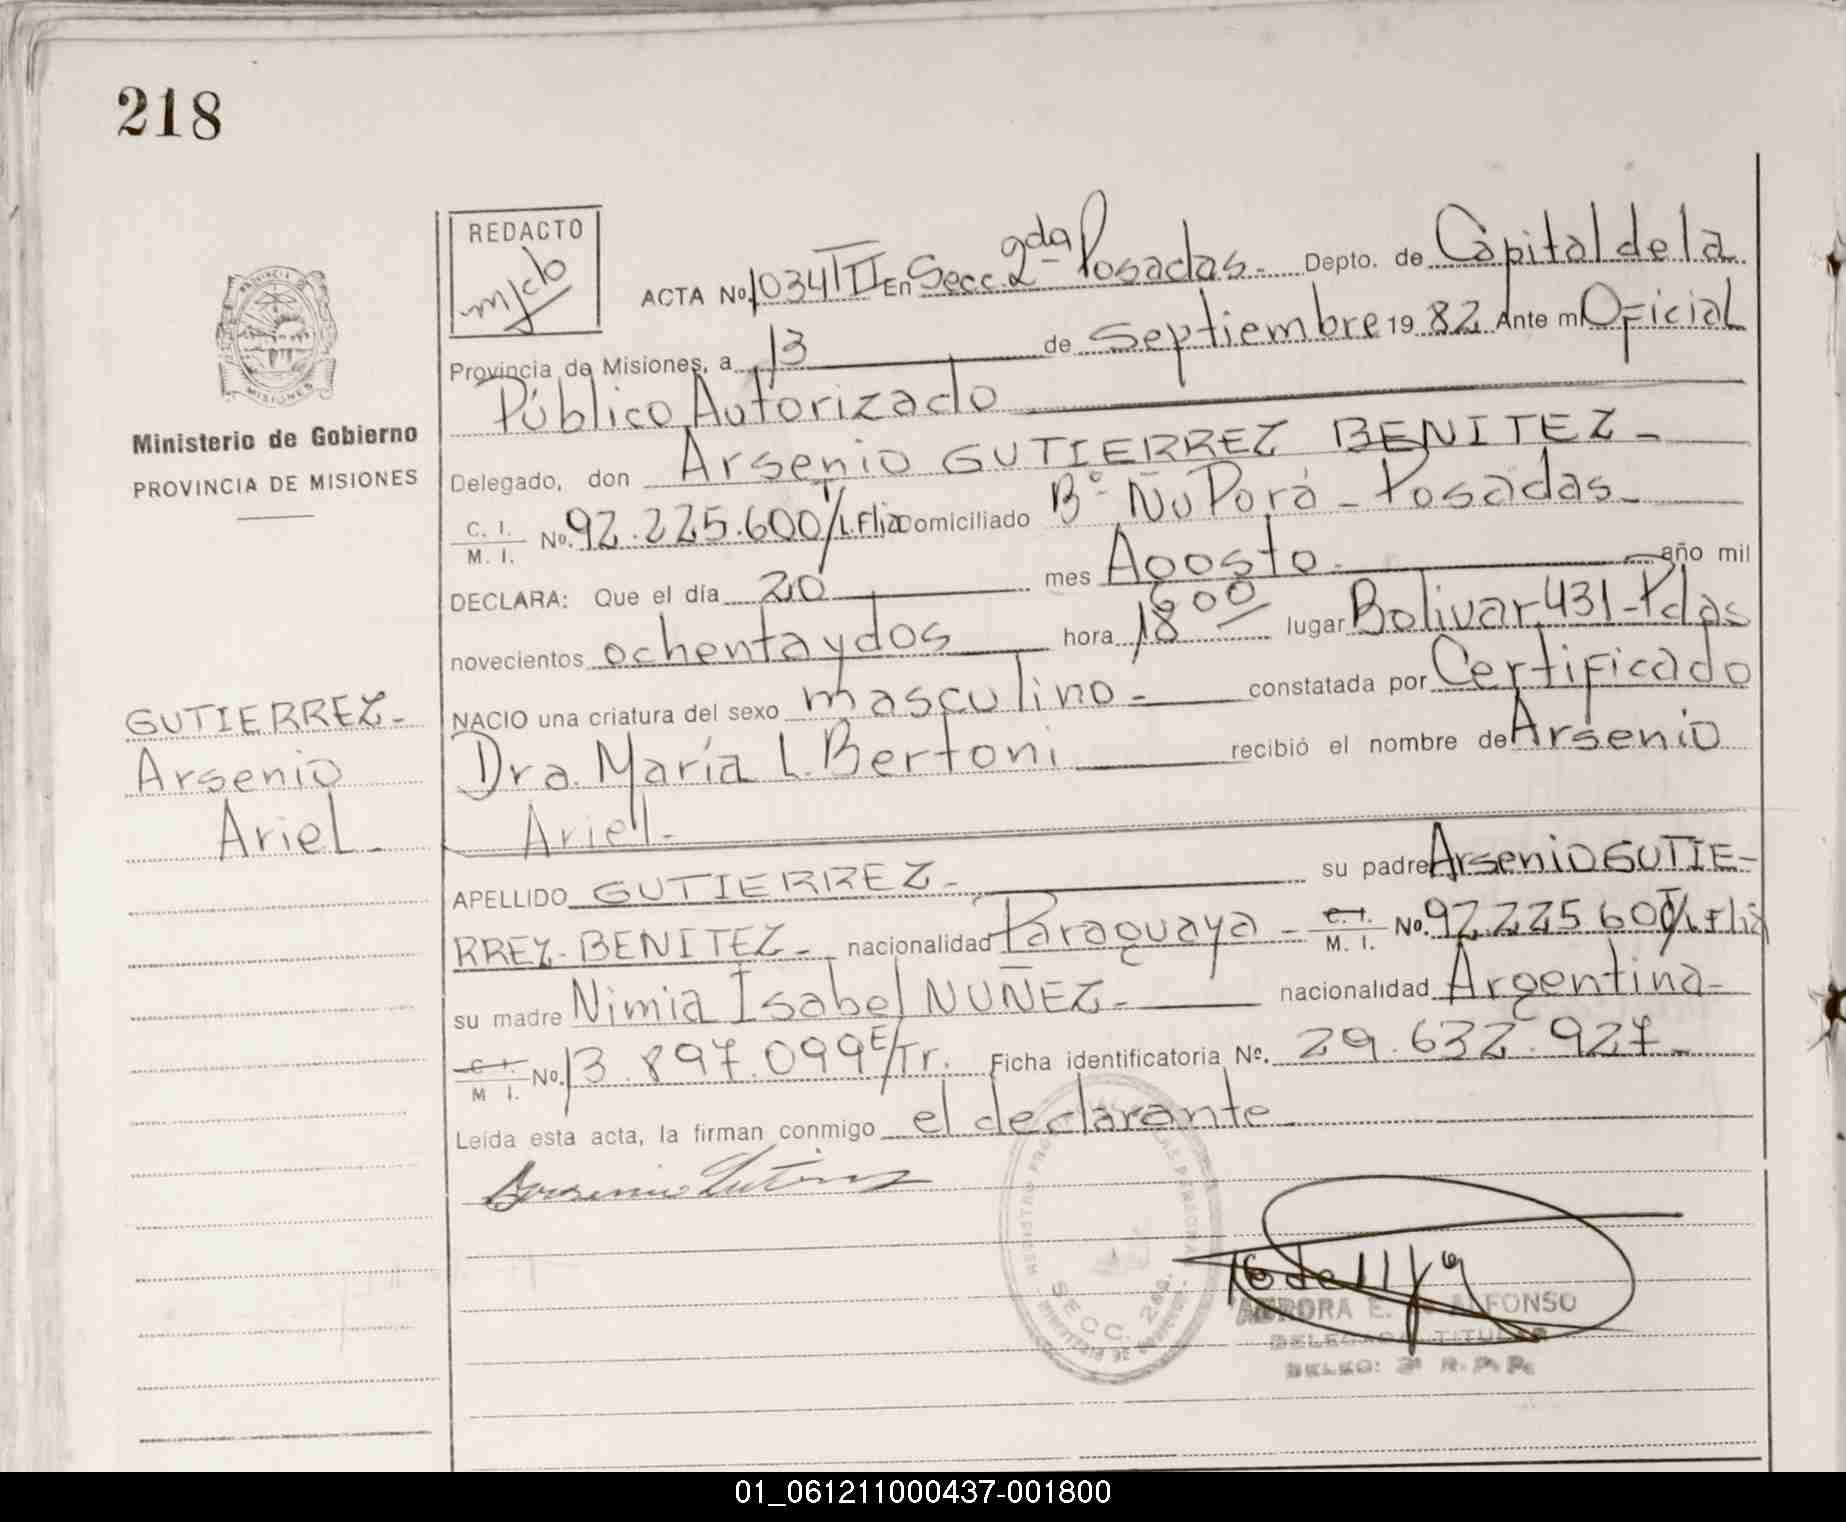 218
REDACTO
mjclo
ACTA No. 1034 III En Secc. 2da Posadas.- Depto. de Capital de la
Provincia de Misiones, a 13 de Septiembre 1982 Ante mi Oficial
Público Autorizado
Ministerio de Gobierno
PROVINCIA DE MISIONES
Delegado, don Arsenio GUTIERREZ BENITEZ-
C. I. M. I. No. 92.225.600 T/I.Flia Domiciliado B° Ñu Porá - Posadas-
DECLARA: Que el día 20 mes Agosto.- año mil
novecientos ochentaydos hora 18,00 lugar Bolivar 431-Pdas
NACIO una criatura del sexo masculino- constatada por Certificado
Dra. María L. Bertoni recibió el nombre de Arsenio
Ariel-
GUTIERREZ-
Arsenio
Ariel-
APELLIDO GUTIERREZ- su padre Arsenio GUTIE-
RREZ-BENITEZ- nacionalidad Paraguaya - C. I. M. I. No. 92.225.600 T/I.Flia
su madre Nimia Isabel NUÑEZ- nacionalidad Argentina-
C. I. M. I. No. 13.897.099 E/Tr. Ficha identificatoria No. 29.632.927-
Leída esta acta, la firman conmigo el declarante
SECC. 2da.
16 de 11
AURORA E. ALFONSO
DELEGADA TITULAR
01_061211000437-001800